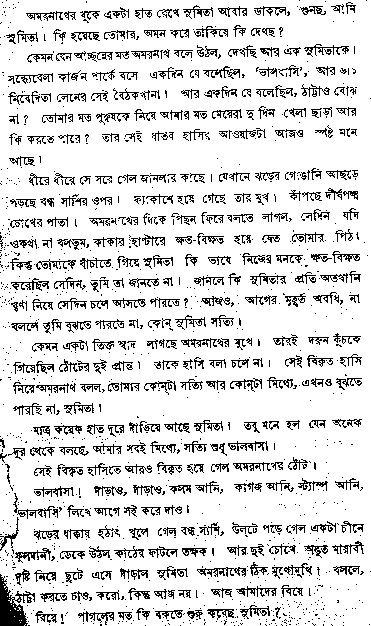 অমরনাথের বুকে একটা হাত রেখে সুমিতা আবার ডাকলে, শুনছ, আমি
সুমিতা। কি হয়েছে তোমার, অমন করে তাকিয়ে কি দেখছ?
কেমন যেন আচ্ছন্নের মত অমরনাথ বলে উঠল, দেখছি আর এক সুমিতাকে।
সন্ধ্যেবেলা কার্জন পার্কে বসে একদিন যে বলেছিল, 'ভালবাসি', আর
নিবেদিতা লেনের সেই বৈঠকখানা! আর একদিন যে বলেছিল, ঠাট্টাও বোঝ
না? তোমার মত পুরুষকে নিয়ে আমার মত মেয়েরা দু দিন খেলা ছাড়া আর
কি করতে পারে? তার সেই হাসির আওয়াজটা আজও স্পষ্ট মনে
আছে!
ধীরে ধীরে সে সরে গেল জানলার কাছে। যেখানে ঝড়ের গোঙানি আছড়ে
পড়ছে বন্ধ সার্শির ওপর। ফ্যাকাশে হয়ে গেছে তার মুখ। কাঁপছে দীর্ঘপক্ষ্ম
চোখের পাতা। অমরনাথের দিকে পিছন ফিরে বলতে লাগল, সেদিন যদি
ওকথা না বলতুম, কাকার হান্টারে ক্ষত-বিক্ষত হয়ে যেত তোমার পিঠ।
কিন্তু তোমাকে বাঁচাতে গিয়ে সুমিতা কি ভাবে নিজের মনকে ক্ষত-বিক্ষত
করেছিল সেদিন, তুমি তা জানতে না। জানলে কি সুমিতার প্রতি অতখানি
ঘৃণা নিয়ে সেদিন চলে আসতে পারতে? আজও, আগের মুহূর্ত অবধি, না
বললে তুমি বুঝতে পারতে না, কোন্ সুমিতা সত্যি।
কেমন একটা তিক্ত স্বাদ লাগছে অমরনাথের মুখে। তারই দরুন কুঁচকে
গিয়েছিল ঠোঁটের দুই প্রান্ত। তাকে হাসি বলা চলে না। সেই বিকৃত হাসি
নিয়ে অমরনাথ বলল, তোমার কোন্‌টা সত্যি আর কোন্‌টা মিথ্যে, এখনও বুঝতে
পারছি না, সুমিতা।
মাত্র কয়েক হাত দূরে দাঁড়িয়ে আছে সুমিতা। তবু মনে হল যেন অনেক
দূর থেকে বলছে, আমার সবই মিথ্যে, সত্যি শুধু ভালবাসা।
সেই বিকৃত হাসিতে আরও বিকৃত হয়ে গেল অমরনাথের ঠোঁট।
ভালবাসা! দাঁড়াও, দাঁড়াও, কলম আনি, কাগজ আনি, স্ট্যাম্প আনি,
'ভালবাসি' লিখে আগে সই করে দাও।
ঝড়ের ধাক্কায় হঠাৎ খুলে গেল বন্ধ সার্শি, উল্‌টে পড়ে গেল একটা চীনে
ফুলদানী, ডেকে উঠল কাঠের ফাটলে তক্ষক। আর দুই চোখে অদ্ভুত মায়াবী
দৃষ্টি নিয়ে ছুটে এসে দাঁড়াল সুমিতা অমরনাথের ঠিক মুখোমুখি। বললে,
ঠাট্টা করতে চাও, করো, কিন্তু আজ নয়। আজ আমাদের বিয়ে।
বিয়ে! পাগলের মত কি বকতে শুরু করেছে সুমিতা?